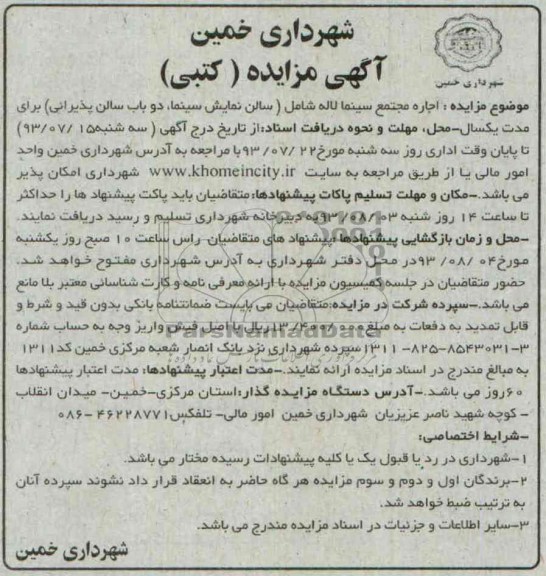 شهرداری خمین
آگهی مزایده ( کتبی)
شهرداری خمین
موضوع مزایده : اجاره مجتمع سینما لاله شامل ( سالن نمایش سینما، دو باب سالن پذیرائی) برای
مدت یکسال-محل، مهلت و نحوه دریافت اسناد:از تاریخ درج آگهی ( سه شنبه۱۵ /۹۳/۰۷)
تا پایان وقت اداری روز سه شنبه مورخ۲۲ /۰۷ /۹۳با مراجعه به آدرس شهرداری خمین واحد
امور مالی یا از طریق مراجعه به سایت www.khomeincity.ir شهرداری امکان پذیر
می باشد.-مکان و مهلت تسلیم پاکات پیشنهادها:متقاضیان باید پاکت پیشنهاد ها را حداکثر
تا ساعت ۱۴ روز شنبه ۹۳/۰۸/۰۳به دبیرخانه شهرداری تسلیم و رسید دریافت نمایند.
-محل و زمان بازگشایی پیشنهادها:پیشنهاد های متقاضیان راس ساعت ۱۰ صبح روز یکشنبه
مورخ۰۴ /۰۸ /۹۳در محل دفتر شهرداری به آدرس شهرداری مفتوح خواهد شد.
حضور متقاضیان در جلسه کمیسیون مزایده با ارائه معرفی نامه و کارت شناسائی معتبر بلا مانع
می باشد.-سپرده شرکت در مزایده:متقاضیان می بایست ضمانتنامه بانکی بدون قید و شرط و
قابل تمدید به دفعات به مبلغ ۱۳/۴۰۰/۰۰۰ ریال یا اصل فیش واریز وجه به حساب شماره
۳-۸۵۴۳۰۳۱-۸۲۵-۱۳۱۱ سپرده شهرداری نزد بانک انصار شعبه مرکزی خمین کد۱۳۱۱
به مبالغ مندرج در اسناد مزایده ارائه نمایند.-مدت اعتبار پیشنهادها: مدت اعتبار پیشنهادها
۶۰روز می باشد.-آدرس دستگاه مزایده گذار:استان مرکزی-خمین- میدان انقلاب
- کوچه شهید ناصر عزیزیان شهرداری خمین امور مالی- تلفکس۴۶۲۲۸۷۷۱ -۰۸۶
-شرایط اختصاصی:
۱-شهرداری در رد یا قبول یک یا کلیه پیشنهادات رسیده مختار می باشد.
۲-برندگان اول و دوم و سوم مزایده هر گاه حاضر به انعقاد قرار داد نشوند سپرده آنان
به ترتیب ضبط خواهد شد.
۳-سایر اطلاعات و جزئیات در اسناد مزایده مندرج می باشد.
شهرداری خمین
ParsNamadData